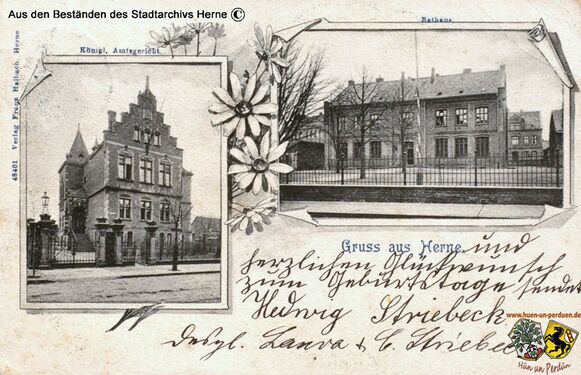 Aus den Beständen des Stadtarchivs Herne ©
Königl. Amtsgericht.
Rathaus.
48401 Verlag Franz Halbach, Herne
Gruss aus Herne und
herzlichen Glückwunsch
zum Geburtstage sendet
Hedwig Striebeck
Desgl. Laura & C. Striebeck
www.huen-un-perduen.de
Hün un Perdün